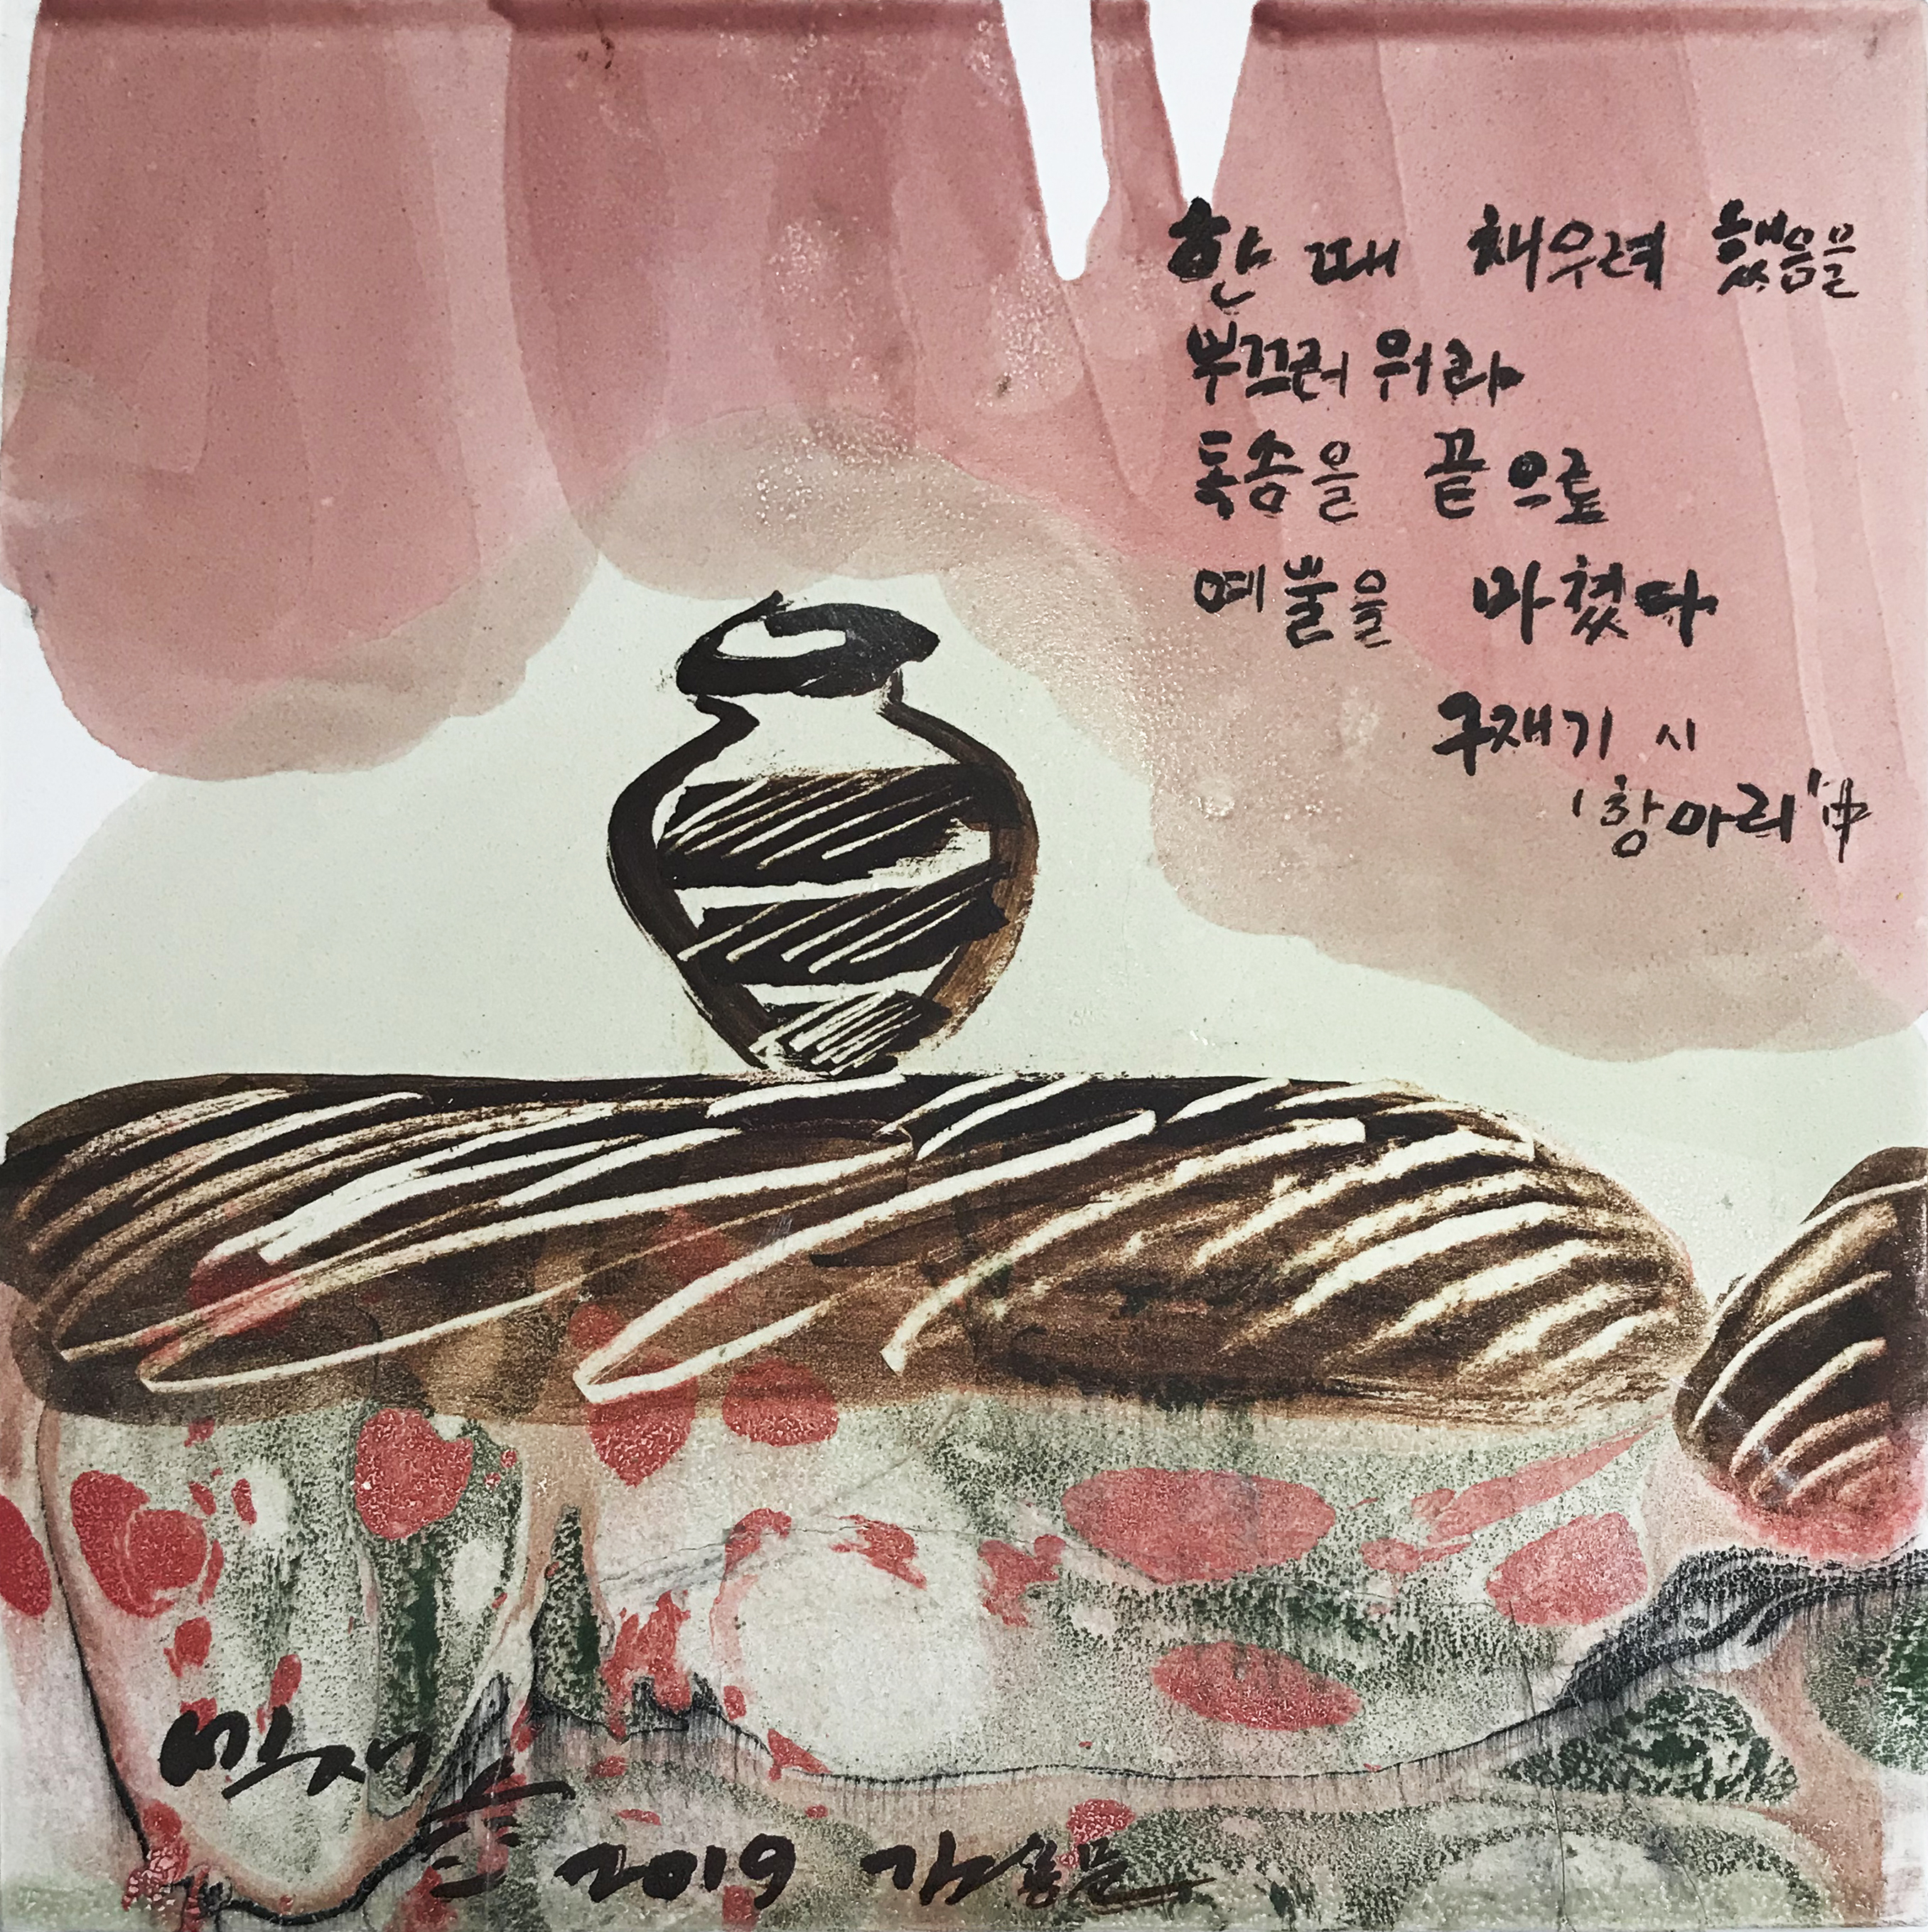 한 때 채우려 했음을
부끄러워라
독송을 끝으로
예불을 마쳤다
구재기 시
'항아리' 中
2019 김용문